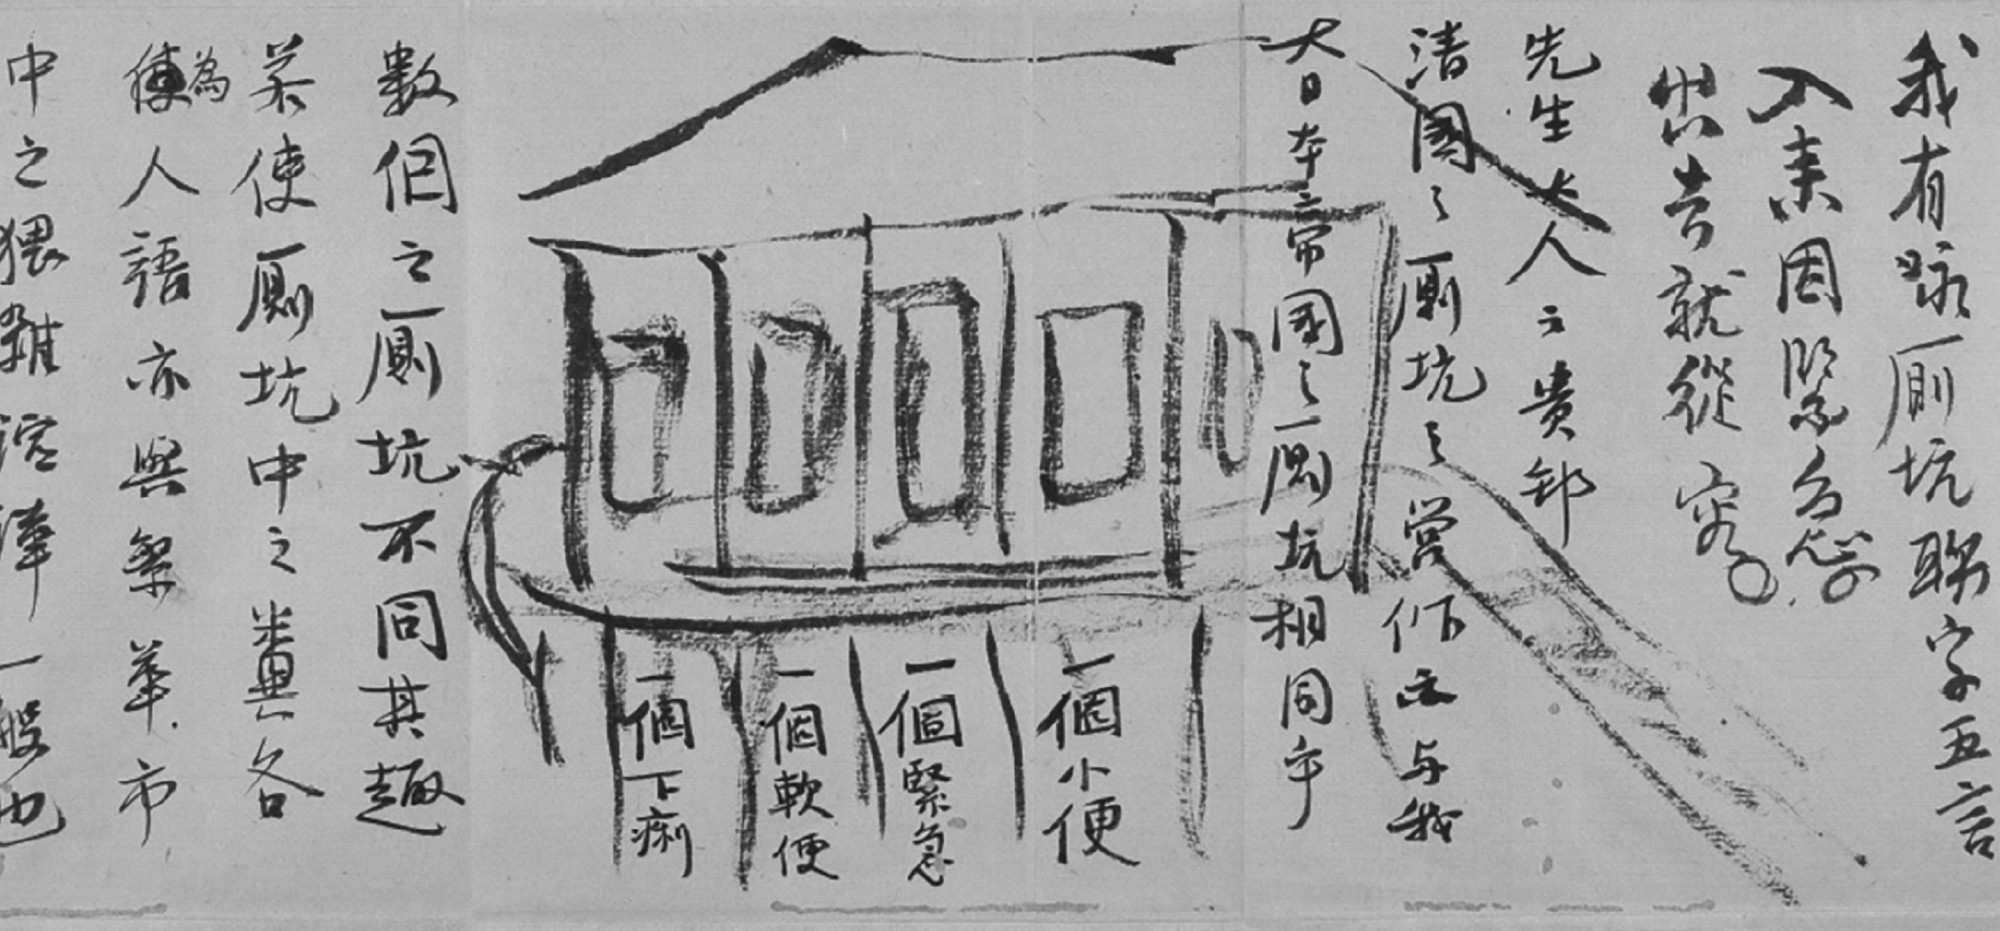 我有咏厠坑聯字五言
入来因緊急
出去就從容
先生大人云貴邦
清國之厠坑之営作与我
大日本帝國之厠坑相同乎
一個小便
一個緊急
一個軟便
一個下痢
數個之厠坑不同其趣
若使厠坑中之糞各
為人語亦與繁華市
中之猥雜喧譁一般也